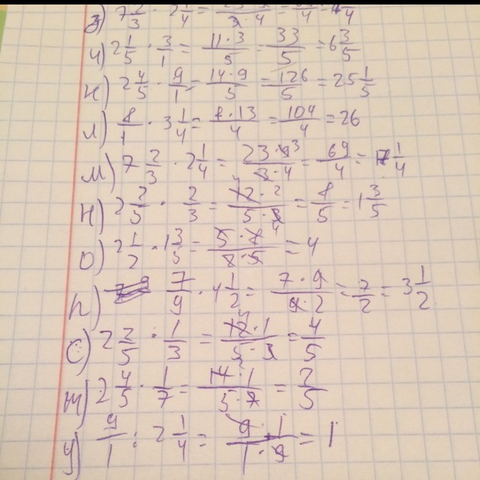 з) 7 2/3 · 2 1/4 =
и) 2 1/5 · 3/1 = 11·3/5 = 33/5 = 6 3/5
к) 2 4/5 · 9/1 = 14·9/5 = 126/5 = 25 1/5
л) 8/1 · 3 1/4 = 8·13/4 = 104/4 = 26
м) 7 2/3 · 2 1/4 = 23·9 3/3·4 = 69/4 = 17 1/4
н) 2 2/5 · 2/3 = 12·2/5·3 = 8/5 = 1 3/5
о) 2 1/2 · 1 3/5 = 5·8 4/2·5 = 4
п) 7/9 · 4 1/2 = 7·9/9·2 = 7/2 = 3 1/2
с) 2 2/5 · 1/3 = 12·1/5·3 = 4/5
т) 2 4/5 · 1/7 = 14·1/5·7 = 2/5
у) 9/1 : 2 1/4 = 9·1/1·9 = 1